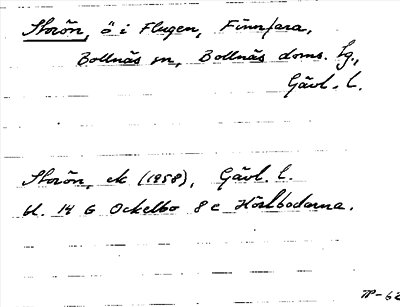 Storön, ö i Flugen, Finnfara,
Bollnäs sn, Bollnäs doms. tg.,
Gävl. l.
Storön, ek (1958), Gävl. l.
bl. 14 G Ockelbo 8 c Höstbodarna.
TP-62